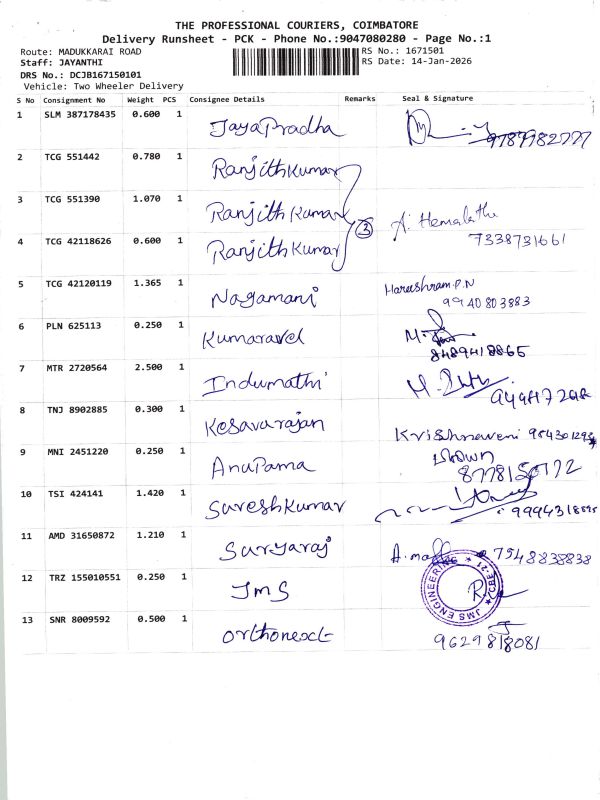 THE PROFESSIONAL COURIERS, COIMBATORE
Delivery Runsheet - PCK - Phone No.:9047080280 - Page No.:1
Route: MADUKKARAI ROAD RS No.: 1671501
Staff: JAYANTHI RS Date: 14-Jan-2026
DRS No.: DCJB167150101
Vehicle: Two Wheeler Delivery
S No Consignment No Weight PCS Consignee Details Remarks Seal & Signature
1 SLM 387178435 0.600 1 JayaPradha
2 TCG 551442 0.780 1 Ranjith Kumar
3 TCG 551390 1.070 1 Ranjith Kumar ③ A. Hemalatha
4 TCG 42118626 0.600 1 Ranjith Kumar 7338731661
5 TCG 42120119 1.365 1 Nagamani Hareeshram.P.N
9940803883
6 PLN 625113 0.250 1 Kumaravel
8489418865
7 MTR 2720564 2.500 1 Indumathi
8 TNJ 8902885 0.300 1 Kesavarajan Krishnaveni
9 MNI 2451220 0.250 1 AnuPama
10 TSI 424141 1.420 1 SureshKumar
11 AMD 31650872 1.210 1 Suryaraj 7548838838
12 TRZ 155010551 0.250 1 JMS JMS ENGINEERING CBE-21
13 SNR 8009592 0.500 1 Orthonext
9629818081